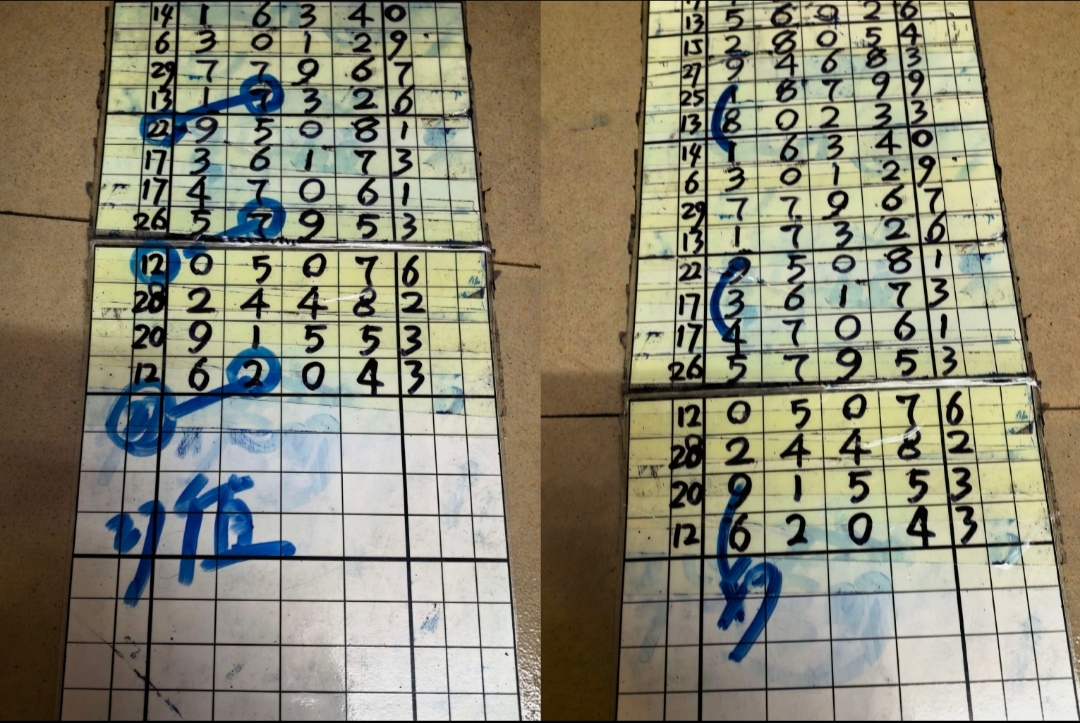 14 1 6 3 4 0
6 3 0 1 2 9
29 7 7 9 6 7
13 1 7 3 2 6
22 9 5 0 8 1
17 3 6 1 7 3
17 4 7 0 6 1
26 5 7 9 5 3
12 0 5 0 7 6
28 2 4 4 8 2
20 9 1 5 5 3
12 6 2 0 4 3
值
13 5 6 0 2 6
15 2 8 0 5 4
27 9 4 6 8 3
25 1 8 7 9 9
13 8 0 2 3 3
14 1 6 3 4 0
6 3 0 1 2 9
29 7 7 9 6 7
13 1 7 3 2 6
22 9 5 0 8 1
17 3 6 1 7 3
17 4 7 0 6 1
26 5 7 9 5 3
12 0 5 0 7 6
28 2 4 4 8 2
20 9 1 5 5 3
12 6 2 0 4 3